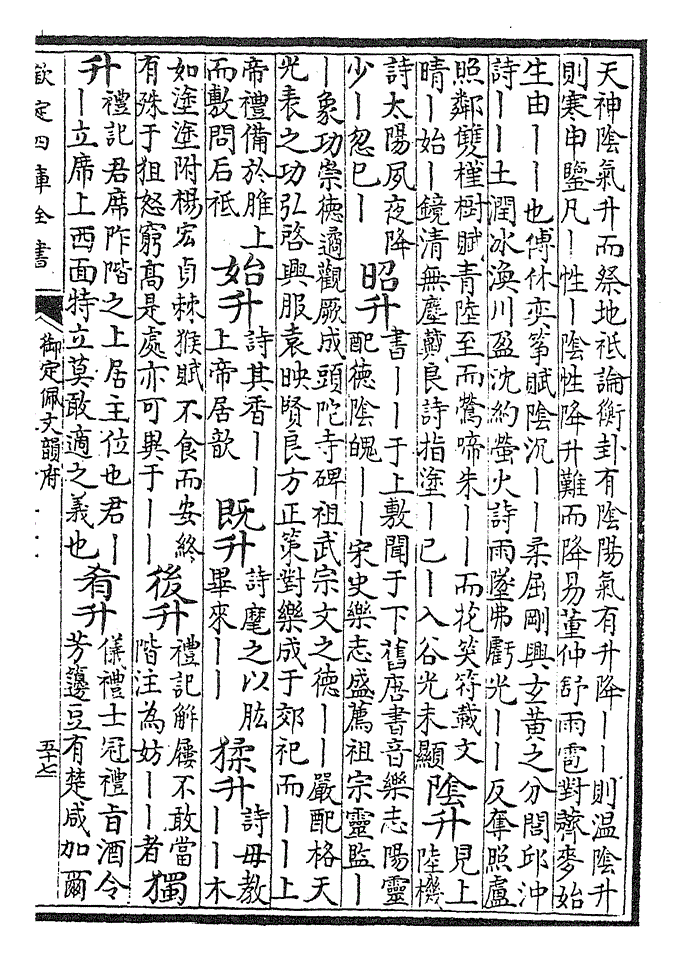 天神陰氣升而祭地祇論衡卦有陰陽氣有升降丨丨則温陰升
則寒申鑒凡丨性丨陰性降升難而降易董仲舒雨雹對薺麥始
生由丨丨也傅休奕筝賦陰沉丨丨柔屈剛興玄黄之分閭邱沖
詩丨丨土潤冰渙川盈沈約螢火詩雨墜弗虧光丨丨反奪照盧
照鄰雙槿樹賦青陸至而鶯啼朱丨丨而花笑符載文
晴丨始丨鏡清無塵戴良詩指塗丨已丨入谷光未顯
陰升
見上
陸機
詩太陽夙夜降
少丨忽已丨
昭升
書丨丨于上敷聞于下舊唐書音樂志陽靈
配德陰魄丨丨宋史樂志盛薦祖宗靈監丨
丨象功崇德遹觀厥成頭陀寺碑祖武宗文之德丨丨嚴配格天
光表之功弘啓興服袁映賢良方正策對樂成于郊祀而丨丨上
帝禮備於脽上
而敷問后祇
始升
詩其香丨丨
上帝居歆
既升
詩麾之以肱
畢來丨丨
猱升
詩毋教
丨丨木
如塗塗附楊宏貞棘猴賦不食而安終
有殊于狙怒窮髙是處亦可異于丨丨
後升
禮記觧屨不敢當
階注為妨丨丨者
獨
升
禮記君席阼階之上居主位也君丨
丨立席上西面特立莫敢適之義也
肴升
儀禮士冠禮旨酒令
芳籩豆有楚咸加爾
欽定四庫全書
御定佩文韻府
五十七